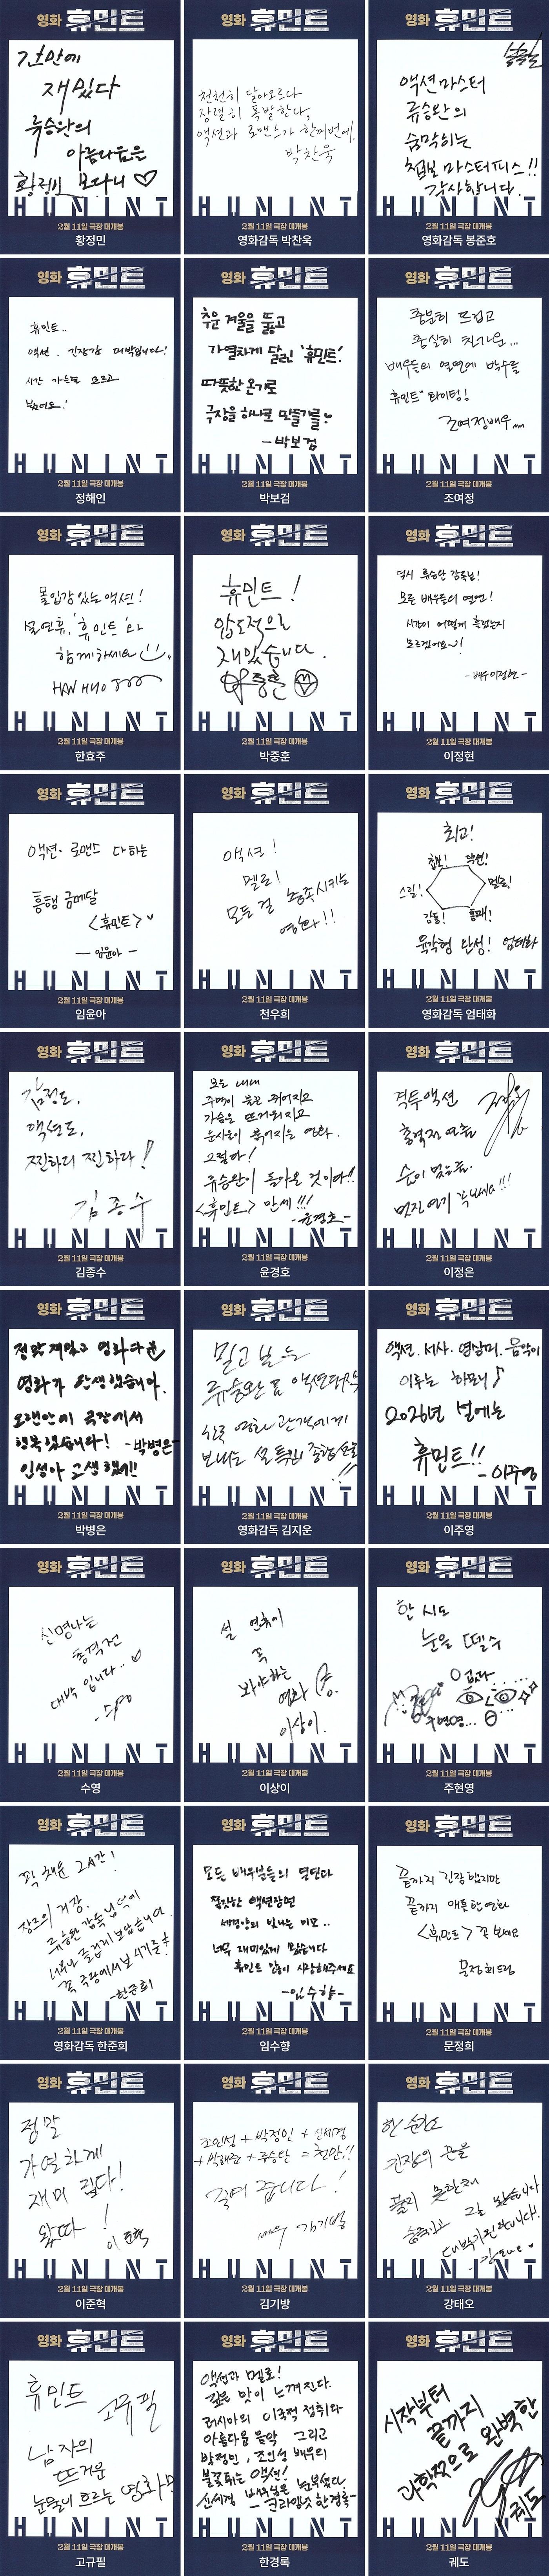 영화 휴민트
간만에
재밌다
류승완의
아름다움은
황정민 보다니 ♡
HUMINT
2월 11일 극장 대개봉
황정민
영화 휴민트
천천히 달아오르다
장렬히 폭발한다,
액션과 로맨스가 한꺼번에.
박찬욱
HUMINT
2월 11일 극장 대개봉
영화감독 박찬욱
영화 휴민트
액션마스터
류승완의
숨막히는
첩보 마스터피스!!
감사합니다.
HUMINT
2월 11일 극장 대개봉
영화감독 봉준호
영화 휴민트
휴민트..
액션. 긴장감 대박입니다!
시간 가는줄 모르고
봤어요!
HUMINT
2월 11일 극장 대개봉
정해인
영화 휴민트
추운 겨울을 뚫고
가열차게 달린 '휴민트'!
따뜻한 온기로
극장을 하나로 만들기를♥
-박보검
HUMINT
2월 11일 극장 대개봉
박보검
영화 휴민트
충분히 뜨겁고
충실히 차가운...
배우들의 열연에 박수를
휴민트" 화이팅!
조여정배우
HUMINT
2월 11일 극장 대개봉
조여정
영화 휴민트
몰입감있는 액션!
설연휴, '휴민트'와
함께하세요
HAN HYO JOO
HUMINT
2월 11일 극장 대개봉
한효주
영화 휴민트
휴민트!
압도적으로
재밌습니다.
박중훈
HUMINT
2월 11일 극장 대개봉
박중훈
영화 휴민트
역시 류승완 감독님!
모든 배우들의 열연!
시간이 어떻게 흘렀는지
모르겠어요~!
-배우이정현-
HUMINT
2월 11일 극장 대개봉
이정현
영화 휴민트
액션·로맨스 다하는
흥행 금메달
<휴민트>♥
-임윤아-
HUMINT
2월 11일 극장 대개봉
임윤아
영화 휴민트
액션!
멜로!
모든 걸 충족시키는
영화!!
HUMINT
2월 11일 극장 대개봉
천우희
영화 휴민트
최고!
첩보! 액션!
스릴! 멜로!
감동! 통쾌!
육각형 완성! 엄태화
HUMINT
2월 11일 극장 대개봉
영화감독 엄태화
영화 휴민트
감정도,
액션도,
찐하디 찐하다!
김종수
HUMINT
2월 11일 극장 대개봉
김종수
영화 휴민트
보는 내내
주먹이 불끈 쥐어지고
가슴은 뜨거워지고
눈시울이 붉어지는 영화.
그렇다!
류승완이 돌아온 것이다!!
<휴민트> 만세!!!
-윤경호-
HUMINT
2월 11일 극장 대개봉
윤경호
영화 휴민트
격투액션
총격전 연출
숨이 멎는듯.
멋진연기 강추해요!!!
HUMINT
2월 11일 극장 대개봉
이정은
영화 휴민트
정말 재밌고 영화다운
영화가 탄생했습니다.
오랜만에 극장에서
행복했습니다! -박병은-
인성아 고생했어!!
HUMINT
2월 11일 극장 대개봉
박병은
영화 휴민트
믿고 보는
류승완 표 액션대작
한국 영화 관객에게
보내는 설 특집 종합선물!!
HUMINT
2월 11일 극장 대개봉
영화감독 김지운
영화 휴민트
액션. 서사. 영상미. 음악이
이루는 하모니♪
2026년 설에는
휴민트!!
-이주영
HUMINT
2월 11일 극장 대개봉
이주영
영화 휴민트
신명나는
총격전
대박 입니다..♡
HUMINT
2월 11일 극장 대개봉
수영
영화 휴민트
설 연휴에
꼭
봐야하는
영화
이상이.
HUMINT
2월 11일 극장 대개봉
이상이
영화 휴민트
한 시도
눈을 뗄 수
없다
주현영...
HUMINT
2월 11일 극장 대개봉
주현영
영화 휴민트
꽉 채운 2시간!
장르의 거장.
류승완 감독님 덕에
너무나 즐겁게 보았습니다.
꼭 극장에서 보시기를!
-한준희
HUMINT
2월 11일 극장 대개봉
영화감독 한준희
영화 휴민트
모든 배우분들의 열연과
짜릿한 액션장면
세경양의 빛나는 미모..
너무 재미있게 봤습니다
휴민트 많이 사랑해주세요
-임수향-
HUMINT
2월 11일 극장 대개봉
임수향
영화 휴민트
끝까지 긴장했지만
끝까지 애틋한 영화
<휴민트> 꼭 보세요
문정희드림
HUMINT
2월 11일 극장 대개봉
문정희
영화 휴민트
정말
가열하게
재미 있다!
왔따!
이준혁
HUMINT
2월 11일 극장 대개봉
이준혁
영화 휴민트
조인성 + 박정민 + 신세경
+ 박해준 + 류승완 = 천만!!
죽여 줍니다!
배우 김기방
HUMINT
2월 11일 극장 대개봉
김기방
영화 휴민트
한 순간도
긴장의 끈을
풀지 못한채
숨죽이고 잘 봤습니다
대박기원합니다!
HUMINT
2월 11일 극장 대개봉
강태오
영화 휴민트
휴민트
고규필
남자의
뜨거운
눈물이 흐르는 영화
HUMINT
2월 11일 극장 대개봉
고규필
영화 휴민트
액션과 멜로!
깊은 맛이 느껴진다.
러시아의 이국적 정취와
아름다운 음악 그리고
박정민, 조인성 배우의
불꽃튀는 액션!
신세경 배우님은 눈부셨다
-크라잉넛 한경록-
HUMINT
2월 11일 극장 대개봉
한경록
영화 휴민트
시작부터
끝까지
과학적으로 완벽한
궤도
HUMINT
2월 11일 극장 대개봉
궤도